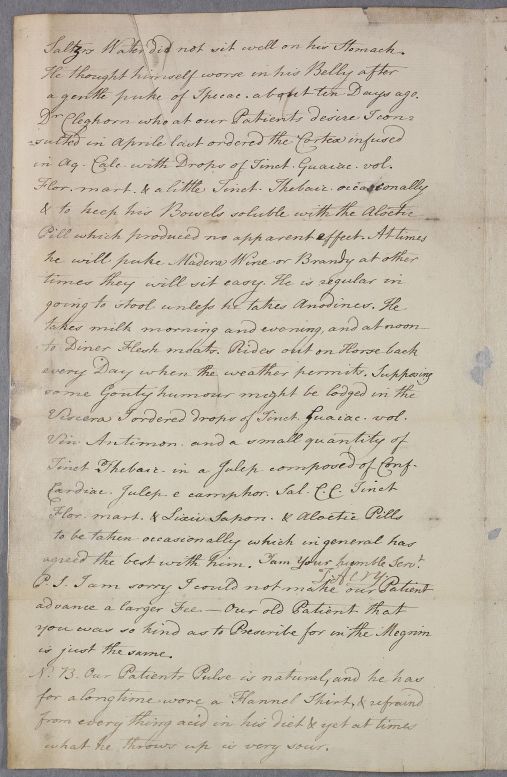 Saltzrs Water did not sit well on his Stomach.
He thought himself worse in his Belly after
a gentle puke of Ipecac. about ten Days ago.
Dr Cleghorn who at our Patients desire I con=
=sulted in Aprile last ordered the Cortex infused
in Aq. Calc. with Drops of Tinct. Guaiac. vol.
Flor. mart. & a little Tinct. Thebaic. occasionally
& to keep his Bowels soluble with the Aloetic
Pill which produced no apparent effect. At times
he will puke Madera Wine or Brandy at other
times they will sit easy. He is regular in
going to stool unless he takes Anodines. He
takes milk morning and evening, and at noon
to Diner Flesh meats. Rides out on Horse back
every Day when the weather permits. Supposing
some Gouty humour might be lodged in the
Viscera I ordered drops of Tinct. Guaiac. vol.
Vin. Antimon. and a small quantity of
Tinct Thebaic. in a Julep composed of Conf.
Cardiac. Julep. e camphor. Sal. C.C. Tinct
Flor. mart. & Lixiv Sapon. & Aloetic Pills
to be taken occasionally which in general has
agreed the best with him. I am Your humble Servt.
P.S. I am sorry I could not make our Patient
advance a larger Fee. — Our old Patient that
you was so kind as to Prescribe for in the Megrim
is just the same.
N: B. Our Patients Pulse is natural, and he has
for a long time wore a Flannel Shirt, & refraind
from every thing acid in his diet & yet at times
what he throws up is very sour.